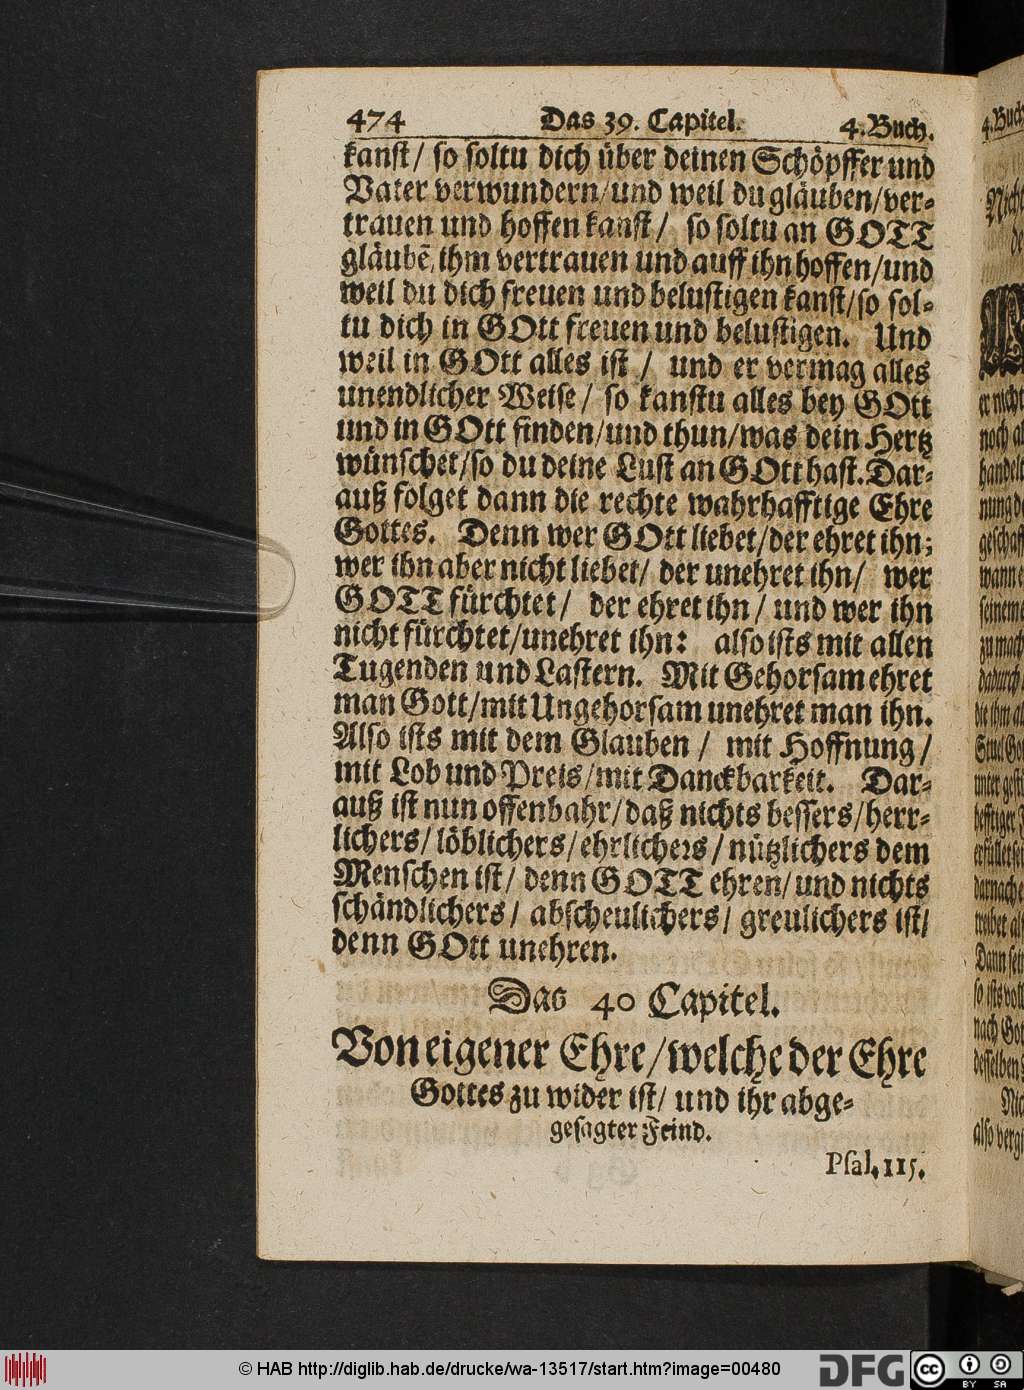 474 Das 39. Capitel. 4. Buch.
kanst / so soltu dich über deinen Schöpffer und
Vater verwundern / und weil du gläuben / ver-
trauen und hoffen kanst / so soltu an GOTT
gläubē, ihm vertrauen und auff ihn hoffen / und
weil du dich freuen und belustigen kanst / so sol-
tu dich in GOtt freuen und belustigen. Und
weil in GOtt alles ist / und er vermag alles
unendlicher Weise / so kanstu alles bey GOtt
und in GOtt finden / und thun / was dein Hertz
wünschet / so du deine Lust an GOtt hast. Dar-
auß folget dann die rechte wahrhafftige Ehre
Gottes. Denn wer GOtt liebet / der ehret ihn;
wer ihn aber nicht liebet / der unehret ihn / wer
GOTT fürchtet / der ehret ihn / und wer ihn
nicht fürchtet / unehret ihn: also ists mit allen
Tugenden und Lastern. Mit Gehorsam ehret
man Gott / mit Ungehorsam unehret man ihn.
Also ists mit dem Glauben / mit Hoffnung /
mit Lob und Preis / mit Danckbarkeit. Dar-
auß ist nun offenbahr / daß nichts bessers / herr-
lichers / löblichers / ehrlichers / nützlichers dem
Menschen ist / denn GOTT ehren / und nichts
schändlichers / abscheulichers / greulichers ist /
denn GOtt unehren.
Das 40 Capitel.
Von eigener Ehre / welche der Ehre
Gottes zu wider ist / und ihr abge-
gesagter Feind.
Psal. 115.
4. Buch
er nicht
handelt
geschaf
seinem
zu mach
dadurch
die ihm al
unter gest
hefftiger
erfüllet sei
darnach e
Dann sein
so ists voll
nach Got
desselben
Nic
also verg
© HAB http://diglib.hab.de/drucke/wa-13517/start.htm?image=00480
DFG
cc
BY SA